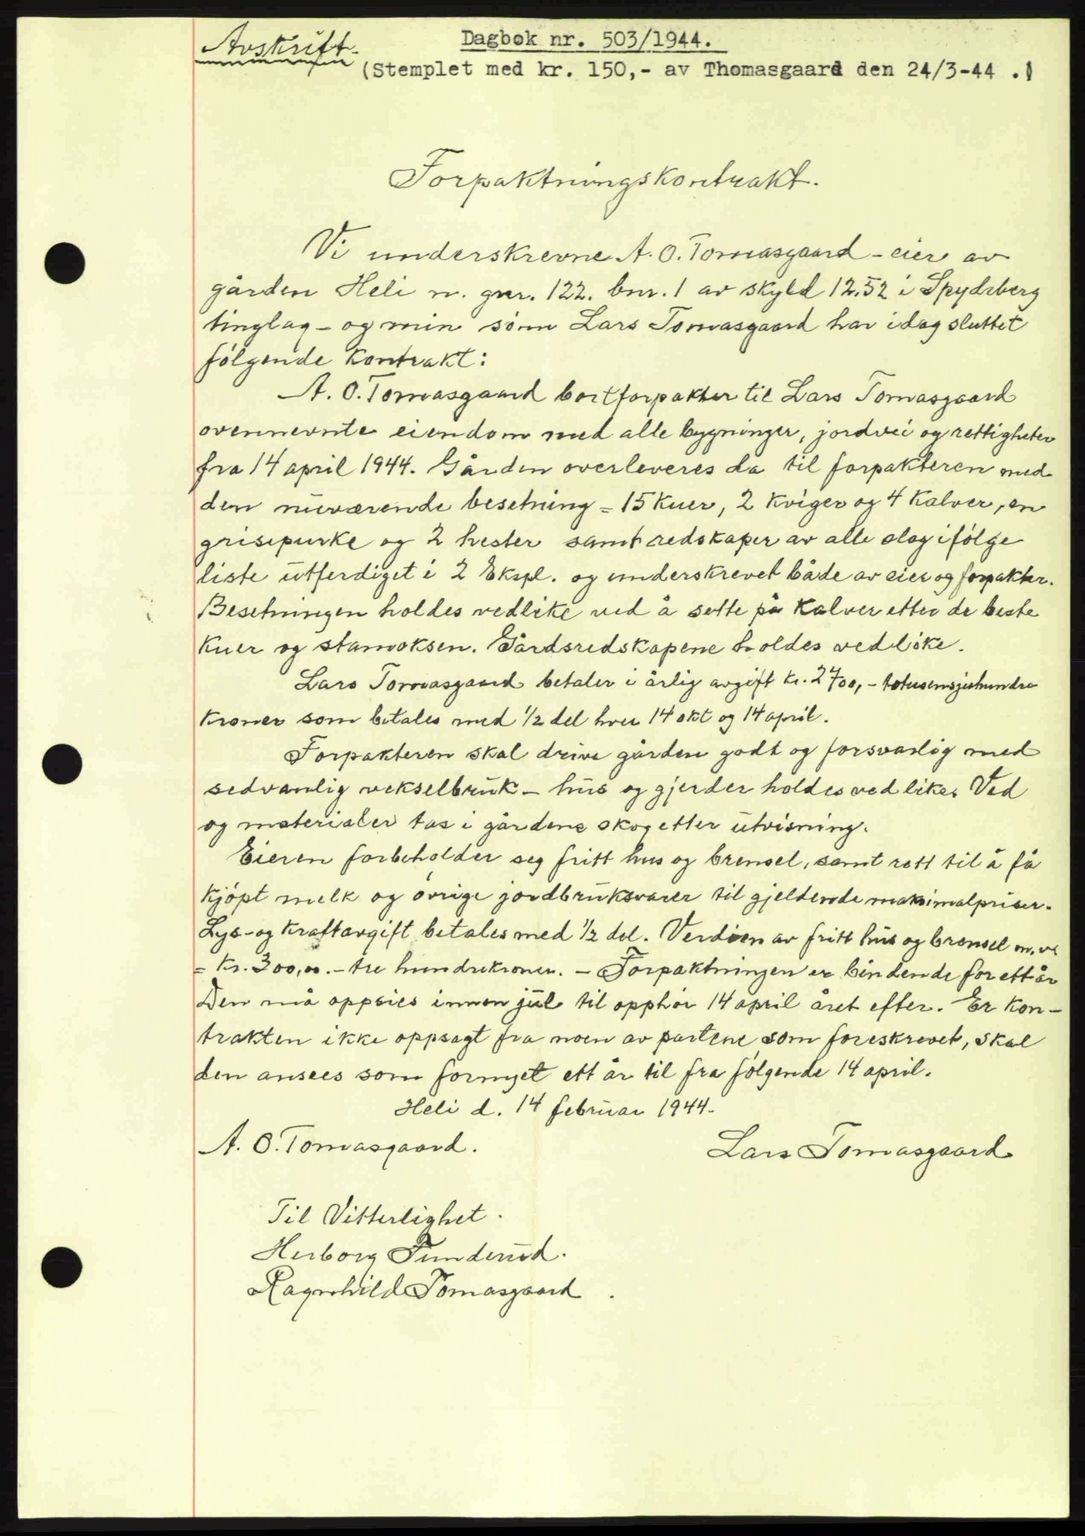 Avskrift.
Dagbok nr. 503/1944.
(Stemplet med kr. 150,- av Thomasgaard den 24/3-44 .)
Forpaktningskontrakt.
Vi underskrevne A. O. Tomasgaard - eier av
gården Heli m. gnr. 122. bnr. 1 av skyld 12.52 i Spydeberg
tinglag - og min sønn Lars Tomasgaard har idag sluttet
følgende kontrakt:
A. O. Tomasgaard bortforpakter til Lars Tomasgaard
ovennevnte eiendom med alle bygninger, jordvei og rettigheter
fra 14 april 1944. Gården overleveres da til forpakteren med
den nuværende besetning = 15 kuer, 2 kviger og 4 kalver, en
grisepurke og 2 hester samt redskaper av alle slag ifølge
liste utferdiget i 2 Ekspl. og underskrevet både av eier og forpakter.
Besetningen holdes vedlike ved å sette på kalver etter de beste
kuer og stamoksen. Gårdsredskapene holdes vedlike.
Lars Tomasgaard betaler i årlig avgift kr. 2700,- totusensjuhundre
kroner som betales med 1/2 del hver 14 okt og 14 april.
Forpakteren skal drive gården godt og forsvarlig med
sedvanlig vekselbruk - hus og gjerder holdes ved like. Ved
og materialer tas i gårdens skog etter utvisning.
Eieren forbeholder seg fritt hus og brensel, samt rett til å få
kjøpt melk og øvrige jordbruksvarer til gjeldende maksimalpriser.
Lys- og kraftavgift betales med 1/2 del. Verdien av fritt hus og brensel m. v.
= kr. 300,00. - tre hundrekroner. - Forpaktningen er bindende for ett år
Den må oppsies innen jul til opphør 14 april året efter. Er kon-
trakten ikke oppsagt fra noen av partene som foreskrevet, skal
den ansees som fornyet ett år til fra følgende 14 april.
Heli d. 14 februar 1944.
A. O. Tomasgaard.
Lars Tomasgaard
Til Vitterlighet.
Herborg Funderud.
Ragnhild Tomasgaard